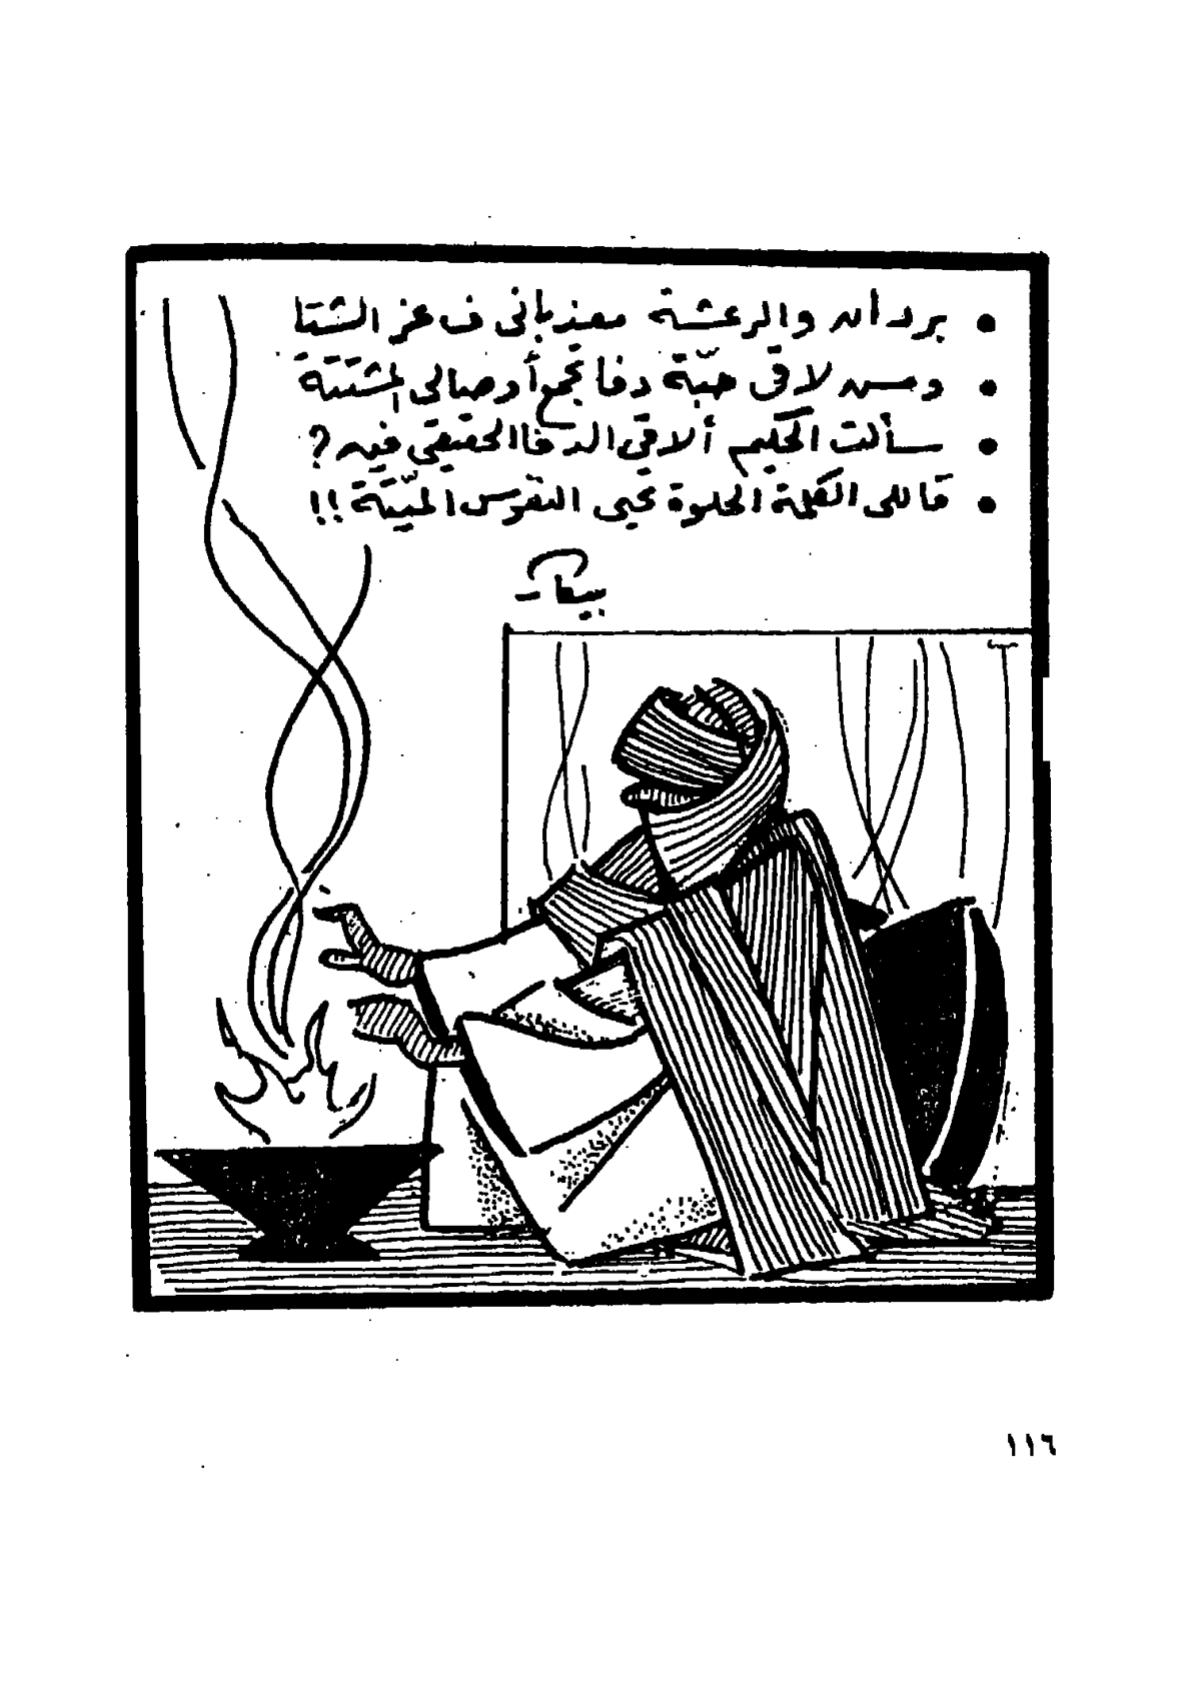 • بردان والرعشة معذباني ف عز الشتا
• ومش لاقي حبّة دفا تجمع أوصالي المشتتة
• سألت الحكيم ألاقي الدفا الحقيقي فين؟
• قاللي الكلمة الحلوة تحيي النفوس الميّتة!!
بيكار
١١٦